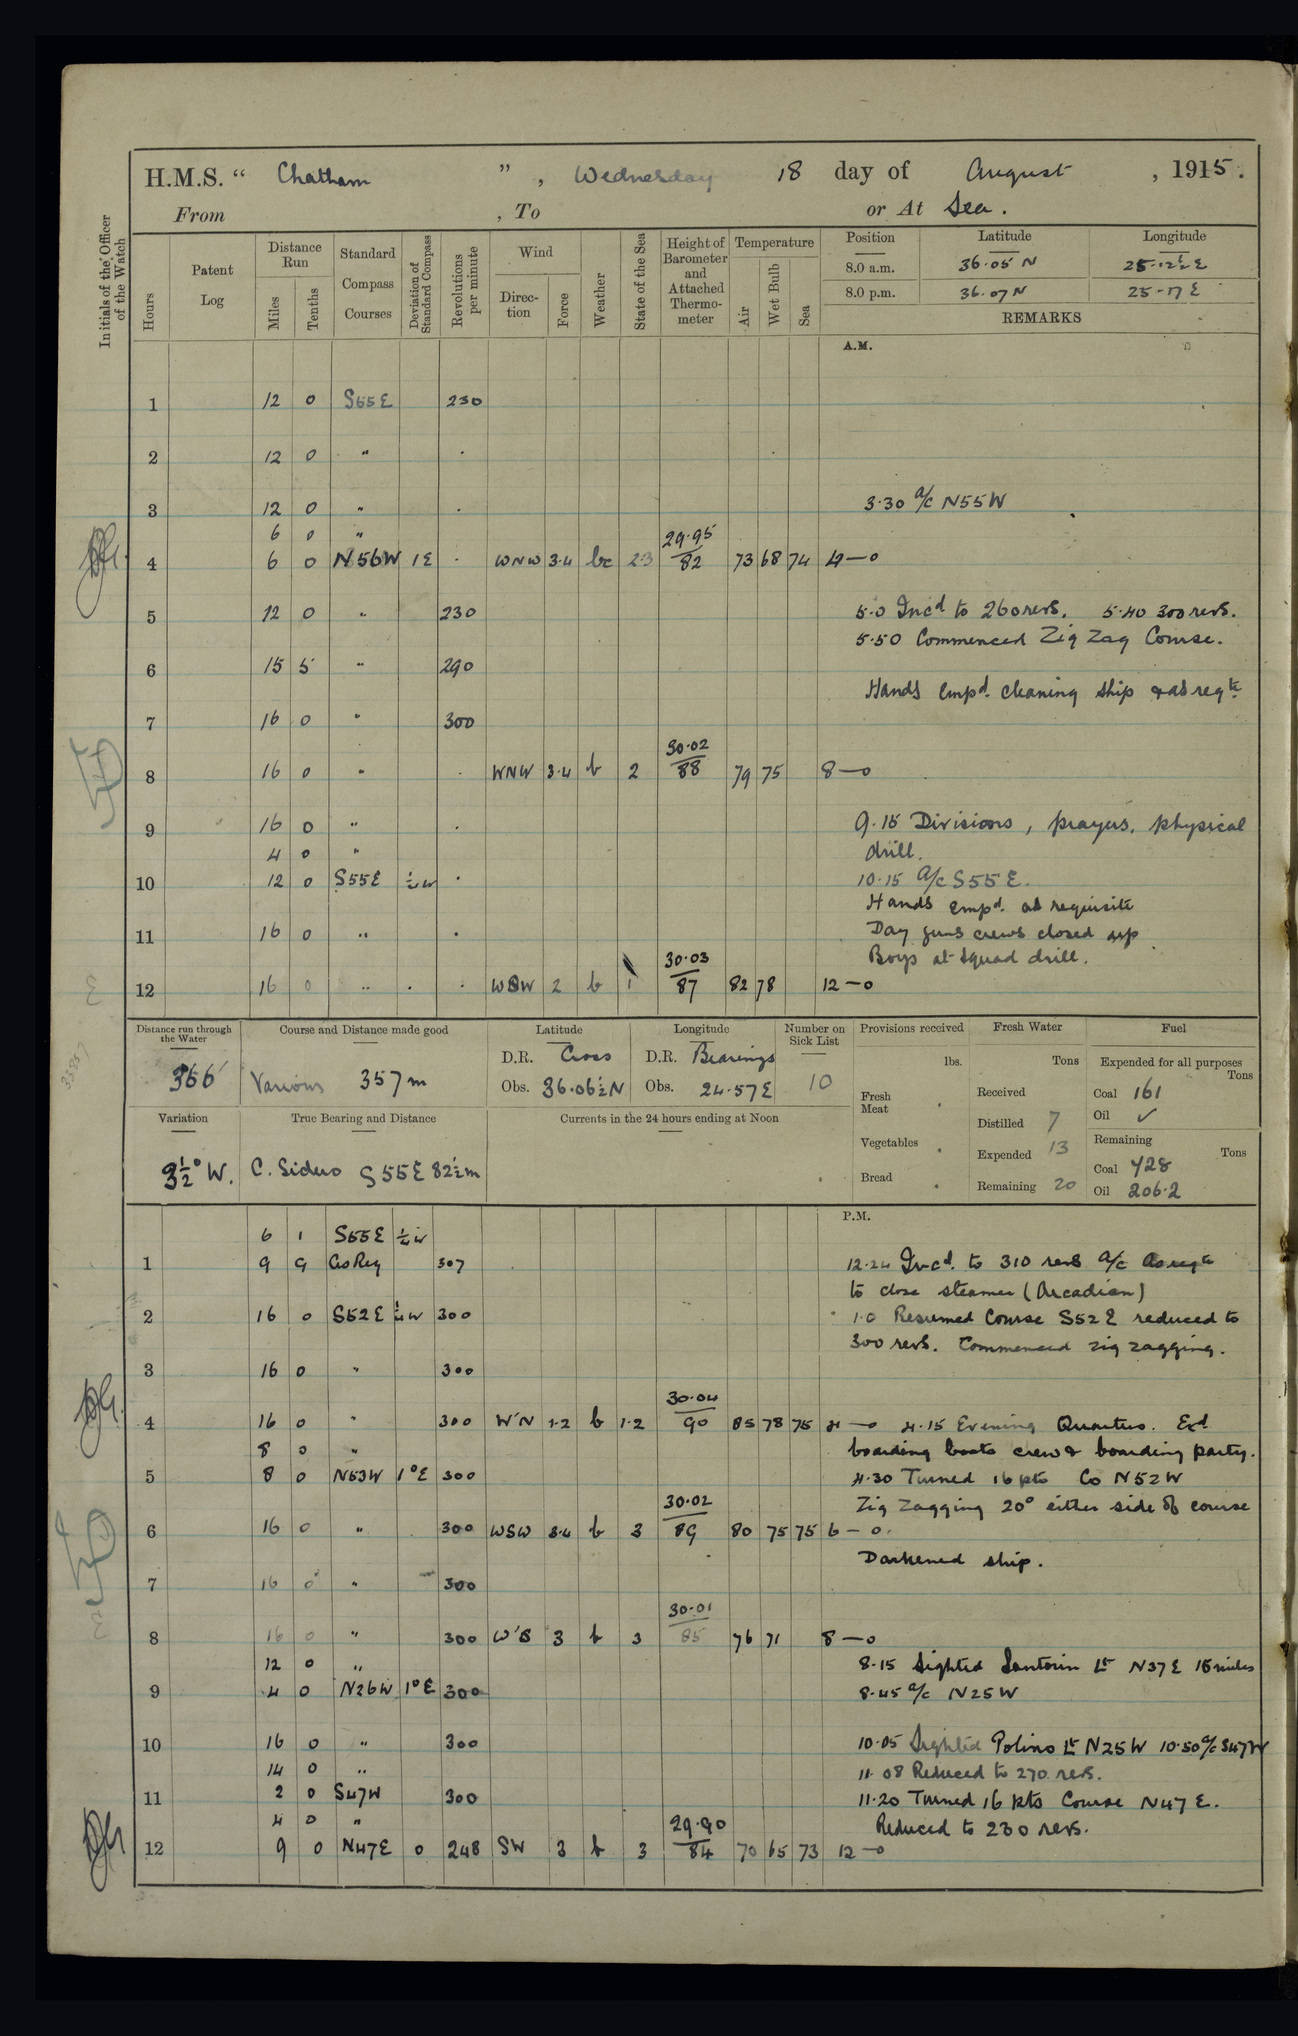 H.M.S. “ Chatham ” , Wednesday 18 day of August , 1915 .
From , To or At Sea .
Initials of the Officer of the Watch
Hours
Patent Log
Distance Run
Miles
Tenths
Standard Compass Courses
Deviation of Standard Compass
Revolutions per minute
Wind
Direction
Force
Weather
State of the Sea
Height of Barometer and Attached Thermometer
Temperature
Air
Wet Bulb
Sea
Position Latitude Longitude
8.0 a.m. 36.05 N 25.12½ E
8.0 p.m. 36.07 N 25-17 E
REMARKS
A.M.
1 12 0 S55E 230
2 12 0 "
3 12 0 " 3.30 a/c N55W
6 0 " 29.95
4 6 0 N56W 1E WNW 3.4 bc 2.3 82 73 68 74 4—0
5 12 0 " 230 5.0 Incd to 260 revs. 5.40 300 revs.
5.50 Commenced Zig Zag Course.
6 15 5 " 290
Hands empd. cleaning ship & as reqte
7 16 0 " 300
30.02
8 16 0 " WNW 3.4 b 2 88 79 75 8—0
9 16 0 " 9.15 Divisions, prayers, physical
4 0 " drill.
10 12 0 S55E ½W 10.15 a/c S55E.
Hands empd. as requisite
11 16 0 " Day guns crews closed up
30.03 Boys at squad drill.
12 16 0 " WSW 2 b 1 87 82 78 12—0
Distance run through the Water Course and Distance made good Latitude Longitude Number on Sick List Provisions received Fresh Water Fuel
366 Various 357 m D.R. Cross D.R. Bearings 10 lbs. Tons Expended for all purposes Tons
Obs. 36.06½N Obs. 24.57E Fresh Meat Received Coal 161
Oil ✓
Variation True Bearing and Distance Currents in the 24 hours ending at Noon Distilled 7
Vegetables Expended 13 Remaining Tons
3½° W. C. Sidero S55E 82½m Coal 428
Bread Remaining 20 Oil 206.2
P.M.
6 1 S55E ½W
1 9 9 Co Req 307 12.24 Incd. to 310 revs a/c as reqte
to close steamer (Arcadian)
2 16 0 S52E ½W 300 1.0 Resumed Course S52E reduced to
300 revs. Commenced zig zagging.
3 16 0 " 300
30.04
4 16 0 " 300 W'N 1.2 b 1.2 90 85 78 75 4—0 4.15 Evening Quarters. Exd
8 0 " boarding boats crew & boarding party.
5 8 0 N53W 1°E 300 4.30 Turned 16 pts Co N52W
30.02 Zig Zagging 20° either side of course
6 16 0 " 300 WSW 3.4 b 3 89 80 75 75 6—0.
Darkened ship.
7 16 0 " 300
30.01
8 16 0 " 300 W'S 3 b 3 85 76 71 8—0
12 0 " 8.15 Sighted Santorin Lt N37E 15 miles
9 4 0 N26W 1°E 300 8.45 a/c N25W
10 16 0 " 300 10.05 Sighted Polino Lt N25W 10.50 a/c S47W
14 0 " 11.08 Reduced to 270 revs.
11 2 0 S47W 300 11.20 Turned 16 pts Course N47E.
4 0 " 29.90 Reduced to 230 revs.
12 9 0 N47E 0 248 SW 3 b 3 84 70 65 73 12—0